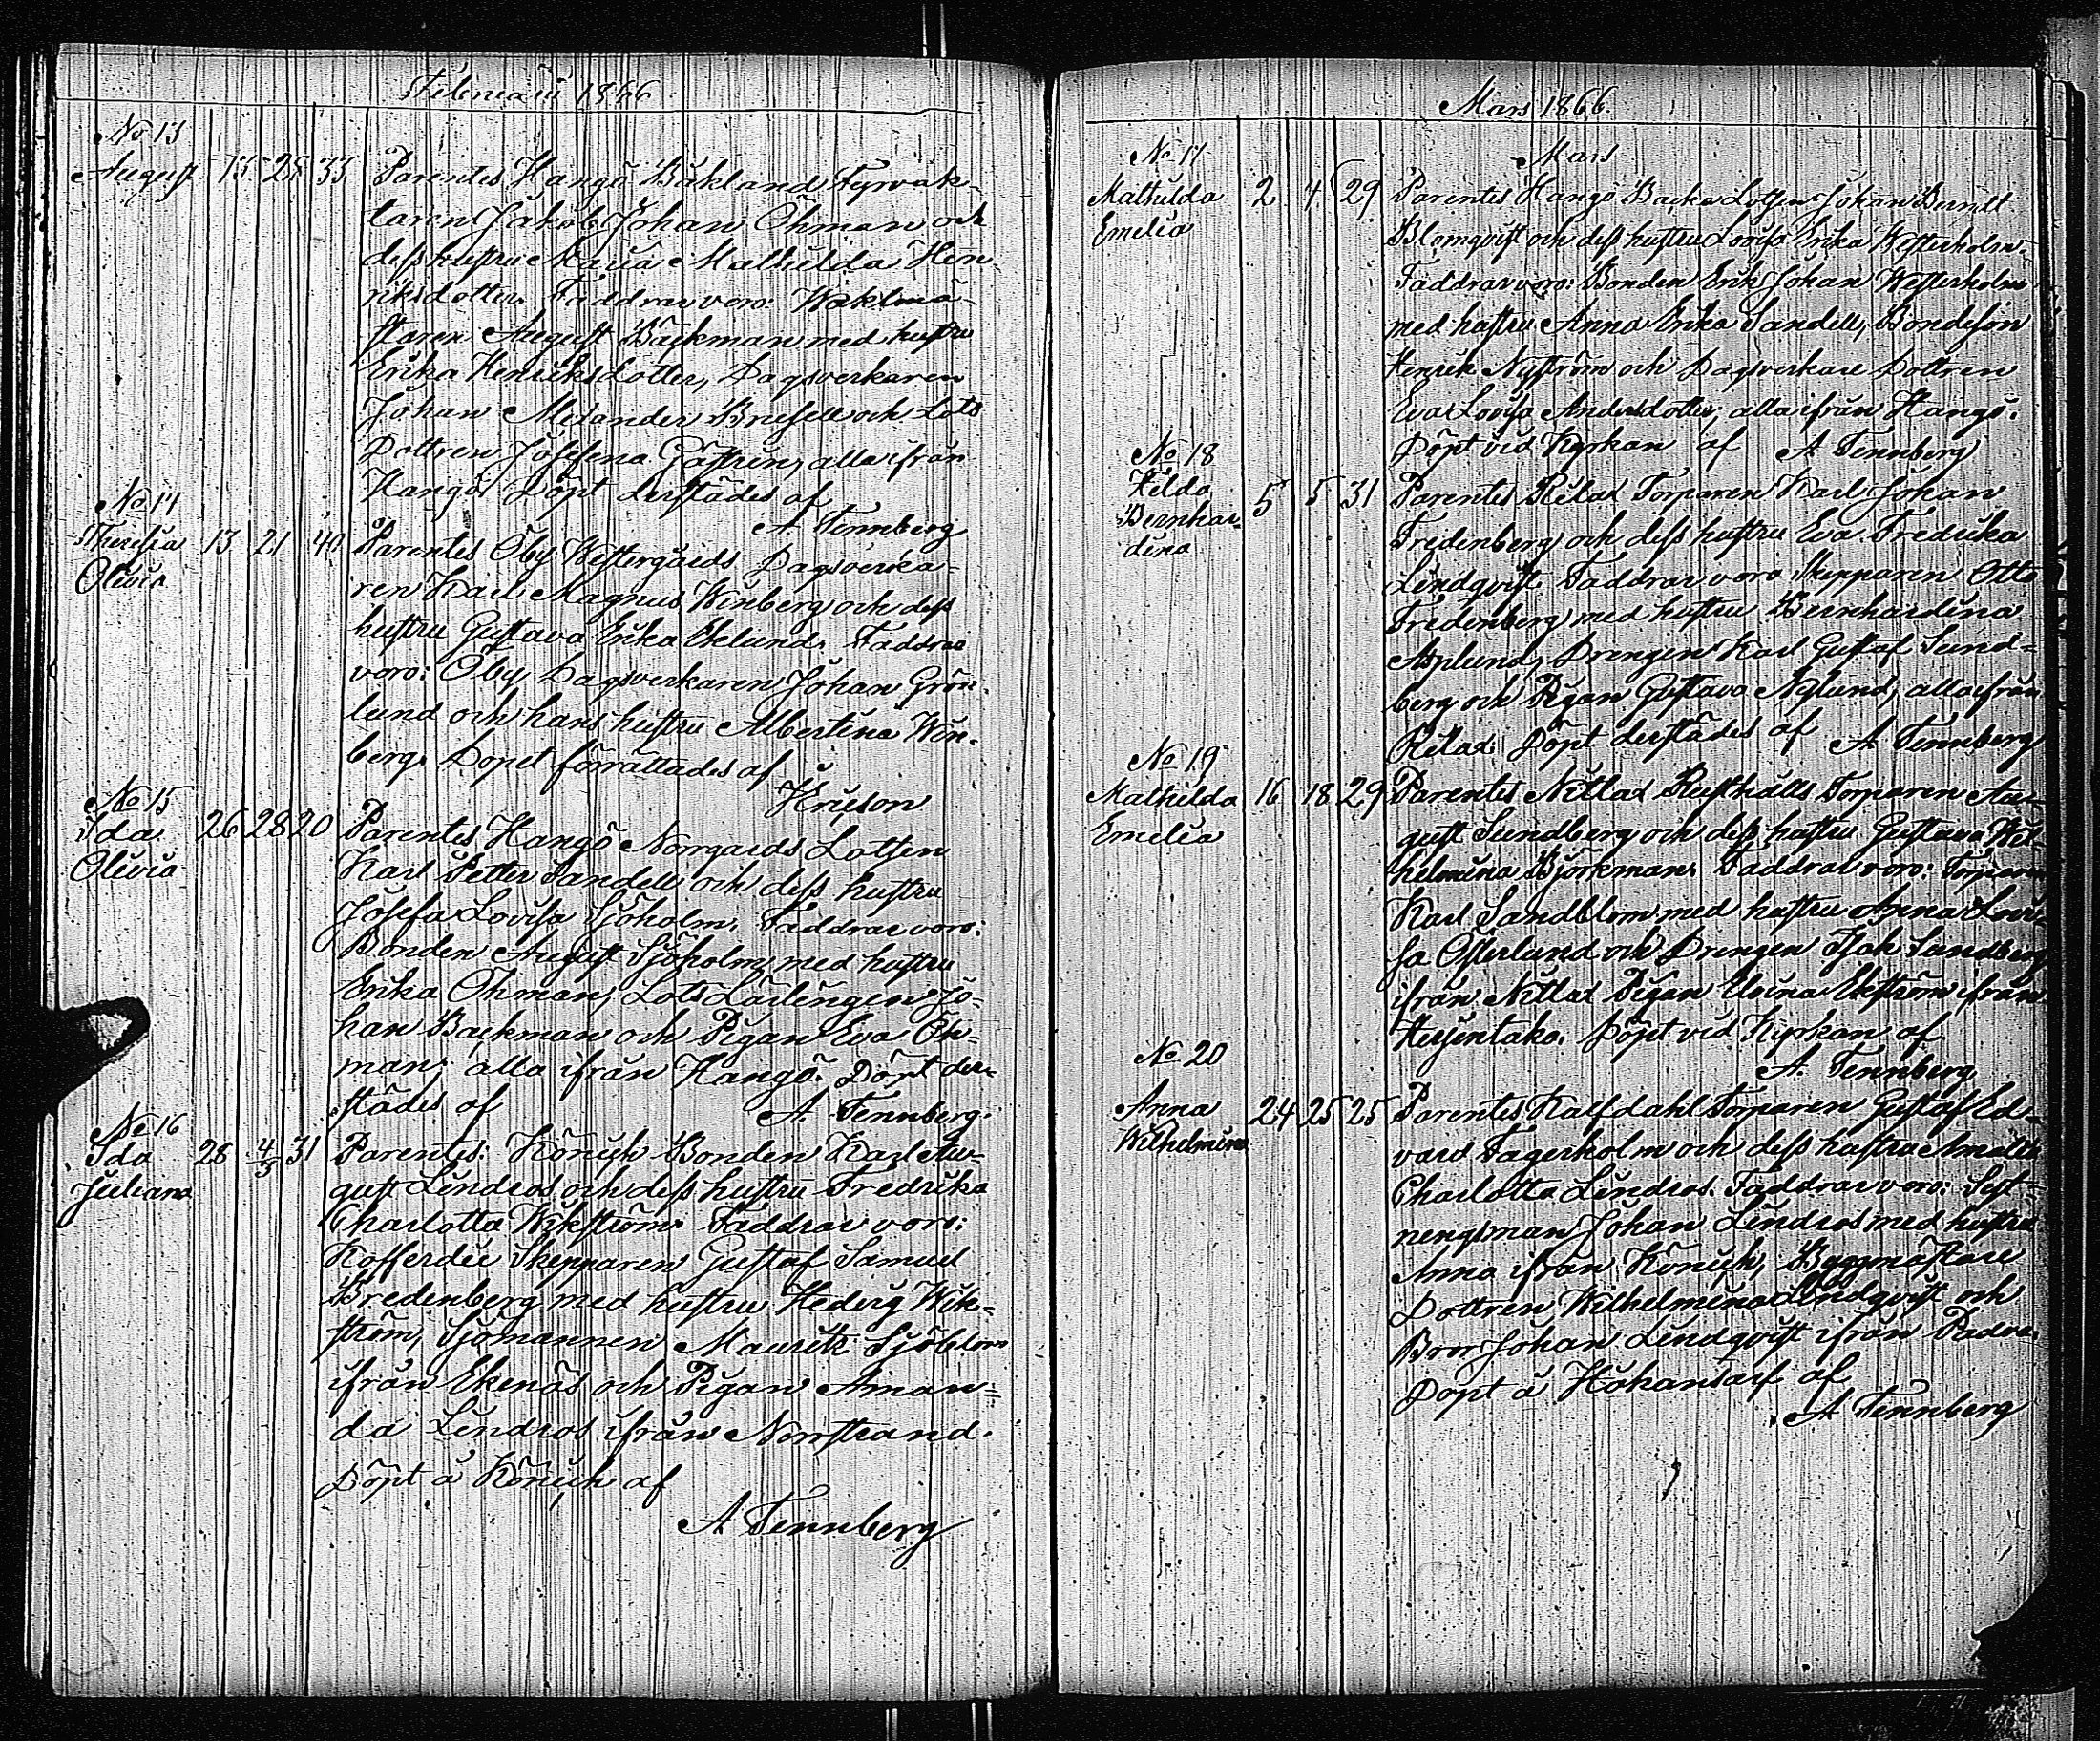 Februarii 1866
No 13
August 13 28 33 Parentes Hangö Båkland Fyrvak-
taren Jakob Johan Öhman och
dess hustru Maria Mathilda Hen-
riksdotter. Faddrar voro: Waktmä-
staren August Bäckman med hustru
Erika Henriksdotter, Dagsverkaren
Johan och Lots
Dottren Josefina alla ifrån
Hangö. Döpt derstädes af
A Tennberg
No 14
Theresia Olivia 13 21 40 Parentes Öby Westergårds Dagsverka-
ren Karl Magnus Winberg och dess
hustru Gustava Erika Eklund. Faddrar
voro: Öby Dagsverkaren Johan Grön-
lund och hans hustru Albertina Win-
berg. Dopet förrättades af
No 15
Ida Olivia 26 28 20 Parentes Hangö Norrgårds Lotsen
Karl Petter Sandell och dess hustru
Josefa Lovisa Sjöholm. Faddrar voro:
Bonden August Sjöholm med hustru
Erika Öhman, Lots Lärlingen Jo-
han Backman och Pigan Eva Öh-
man alla ifrån Hangö. Döpt der-
städes af A. Tennberg.
No 16
Ida Juliana 28 4/3 31 Parentes: Bonden Karl Au-
gust Lindros och dess hustru Fredrika
Charlotta Wikström. Faddrar voro:
Kofferdie Skepparen Gustaf Samuel
Bredenberg med hustru Hedvig Wik-
ström, Sjömannen Mauritz Sjöblom
ifrån Ekenäs och Pigan Aman-
da Lindros ifrån Norrstrand.
Döpt å af
A Tennberg
Mars 1866
No 17 Mars
Mathilda Emelia 2 4 29 Parentes Hangö Backa Lotsen Johan Berndt
Blomqvist och dess hustru Lovisa Erika Westerholm.
Faddrar voro: Bonden Erik Johan Westerholm
med hustru Anna Erika Sandell, Bondeson
Henrik Nyström och Dagsverkare Dottren
Eva Lovisa Andersdotter, alla ifrån Hangö.
Döpt vid Kyrkan af A Tennberg
No 18
Hilda Bernhar-
dina 5 5 31 Parentes Rilax Torparen Karl Johan
Fredenberg och dess hustru Eva Fredrika
Lindqvist. Faddrar voro Skepparen Otto
Fredenberg med hustru Bernhardina
Asplund, Drengen Karl Gustaf Sund-
berg och Pigan Gustava Nylund, alla ifrån
Rilax. Döpt derstädes af A Tennberg
No 19
Mathilda Emelia 16 18 29 Parentes Nitlax Rusthålls Torparen Au-
gust Sundberg och dess hustru Gustava Wil-
helmina Björkman. Faddrar voro: Torparen
Karl Sandblom med hustru Anna Lovi-
sa Österlund och Drengen Isak Sundberg
ifrån Nitlax Pigan Elvina Ekström ifrån
Döpt vid Kyrkan af
A. Tennberg
No 20
Anna Wilhelmina 24 25 25 Parentes Kalfdahl Torparen Gustaf Ed-
vard Fagerholm och dess hustru Amalia
Charlotta Lindros. Faddrar voro: Sext-
nengsman Johan Lindros med hustru
Anna ifrån Byggmästare
Dottren Wilhelmina Lindqvist och
Bror Johan Lindqvist ifrån
Döpt å af
A Tennberg